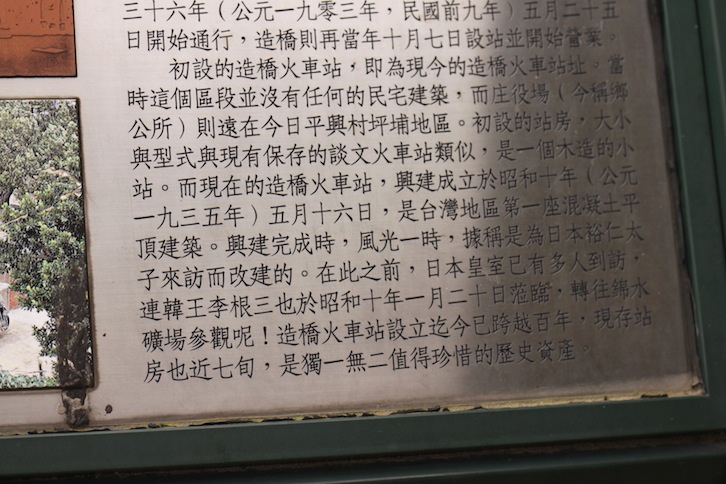 三十六年（公元一九零三年，民國前九年）五月二十五
日開始通行，造橋則再當年十月七日設站並開始營業。
初設的造橋火車站，即為現今的造橋火車站址。當
時這個區段並沒有任何的民宅建築，而庄役場（今稱鄉
公所）則遠在今日平興村坪埔地區。初設的站房，大小
與型式與現有保存的談文火車站類似，是一個木造的小
站。而現在的造橋火車站，興建成立於昭和十年（公元
一九三五年）五月十六日，是台灣地區第一座混凝土平
頂建築。興建完成時，風光一時，據稱是為日本裕仁太
子來訪而改建的。在此之前，日本皇室已有多人到訪，
連韓王李根三也於昭和十年一月二十日蒞臨，轉往錦水
礦場參觀呢！造橋火車站設立迄今已跨越百年，現存站
房也近七旬，是獨一無二值得珍惜的歷史資產。